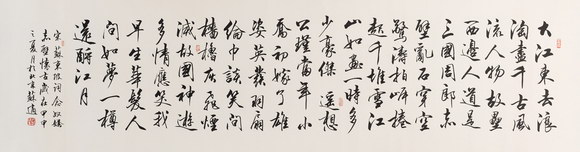 大江東去浪
淘盡千古風
流人物故壘
西邊人道是
三國周郎赤
壁亂石穿空
驚濤拍岸捲
起千堆雪江
山如畫一時多
少豪傑遙想
公瑾當年小
喬初嫁了雄
姿英發羽扇
綸巾談笑間
檣櫓灰飛煙
滅故國神遊
多情應笑我
早生華髮人
間如夢一樽
還酹江月
宋蘇東坡詞念奴嬌
赤壁懷古歲在甲申
之夏月於北京蘇適